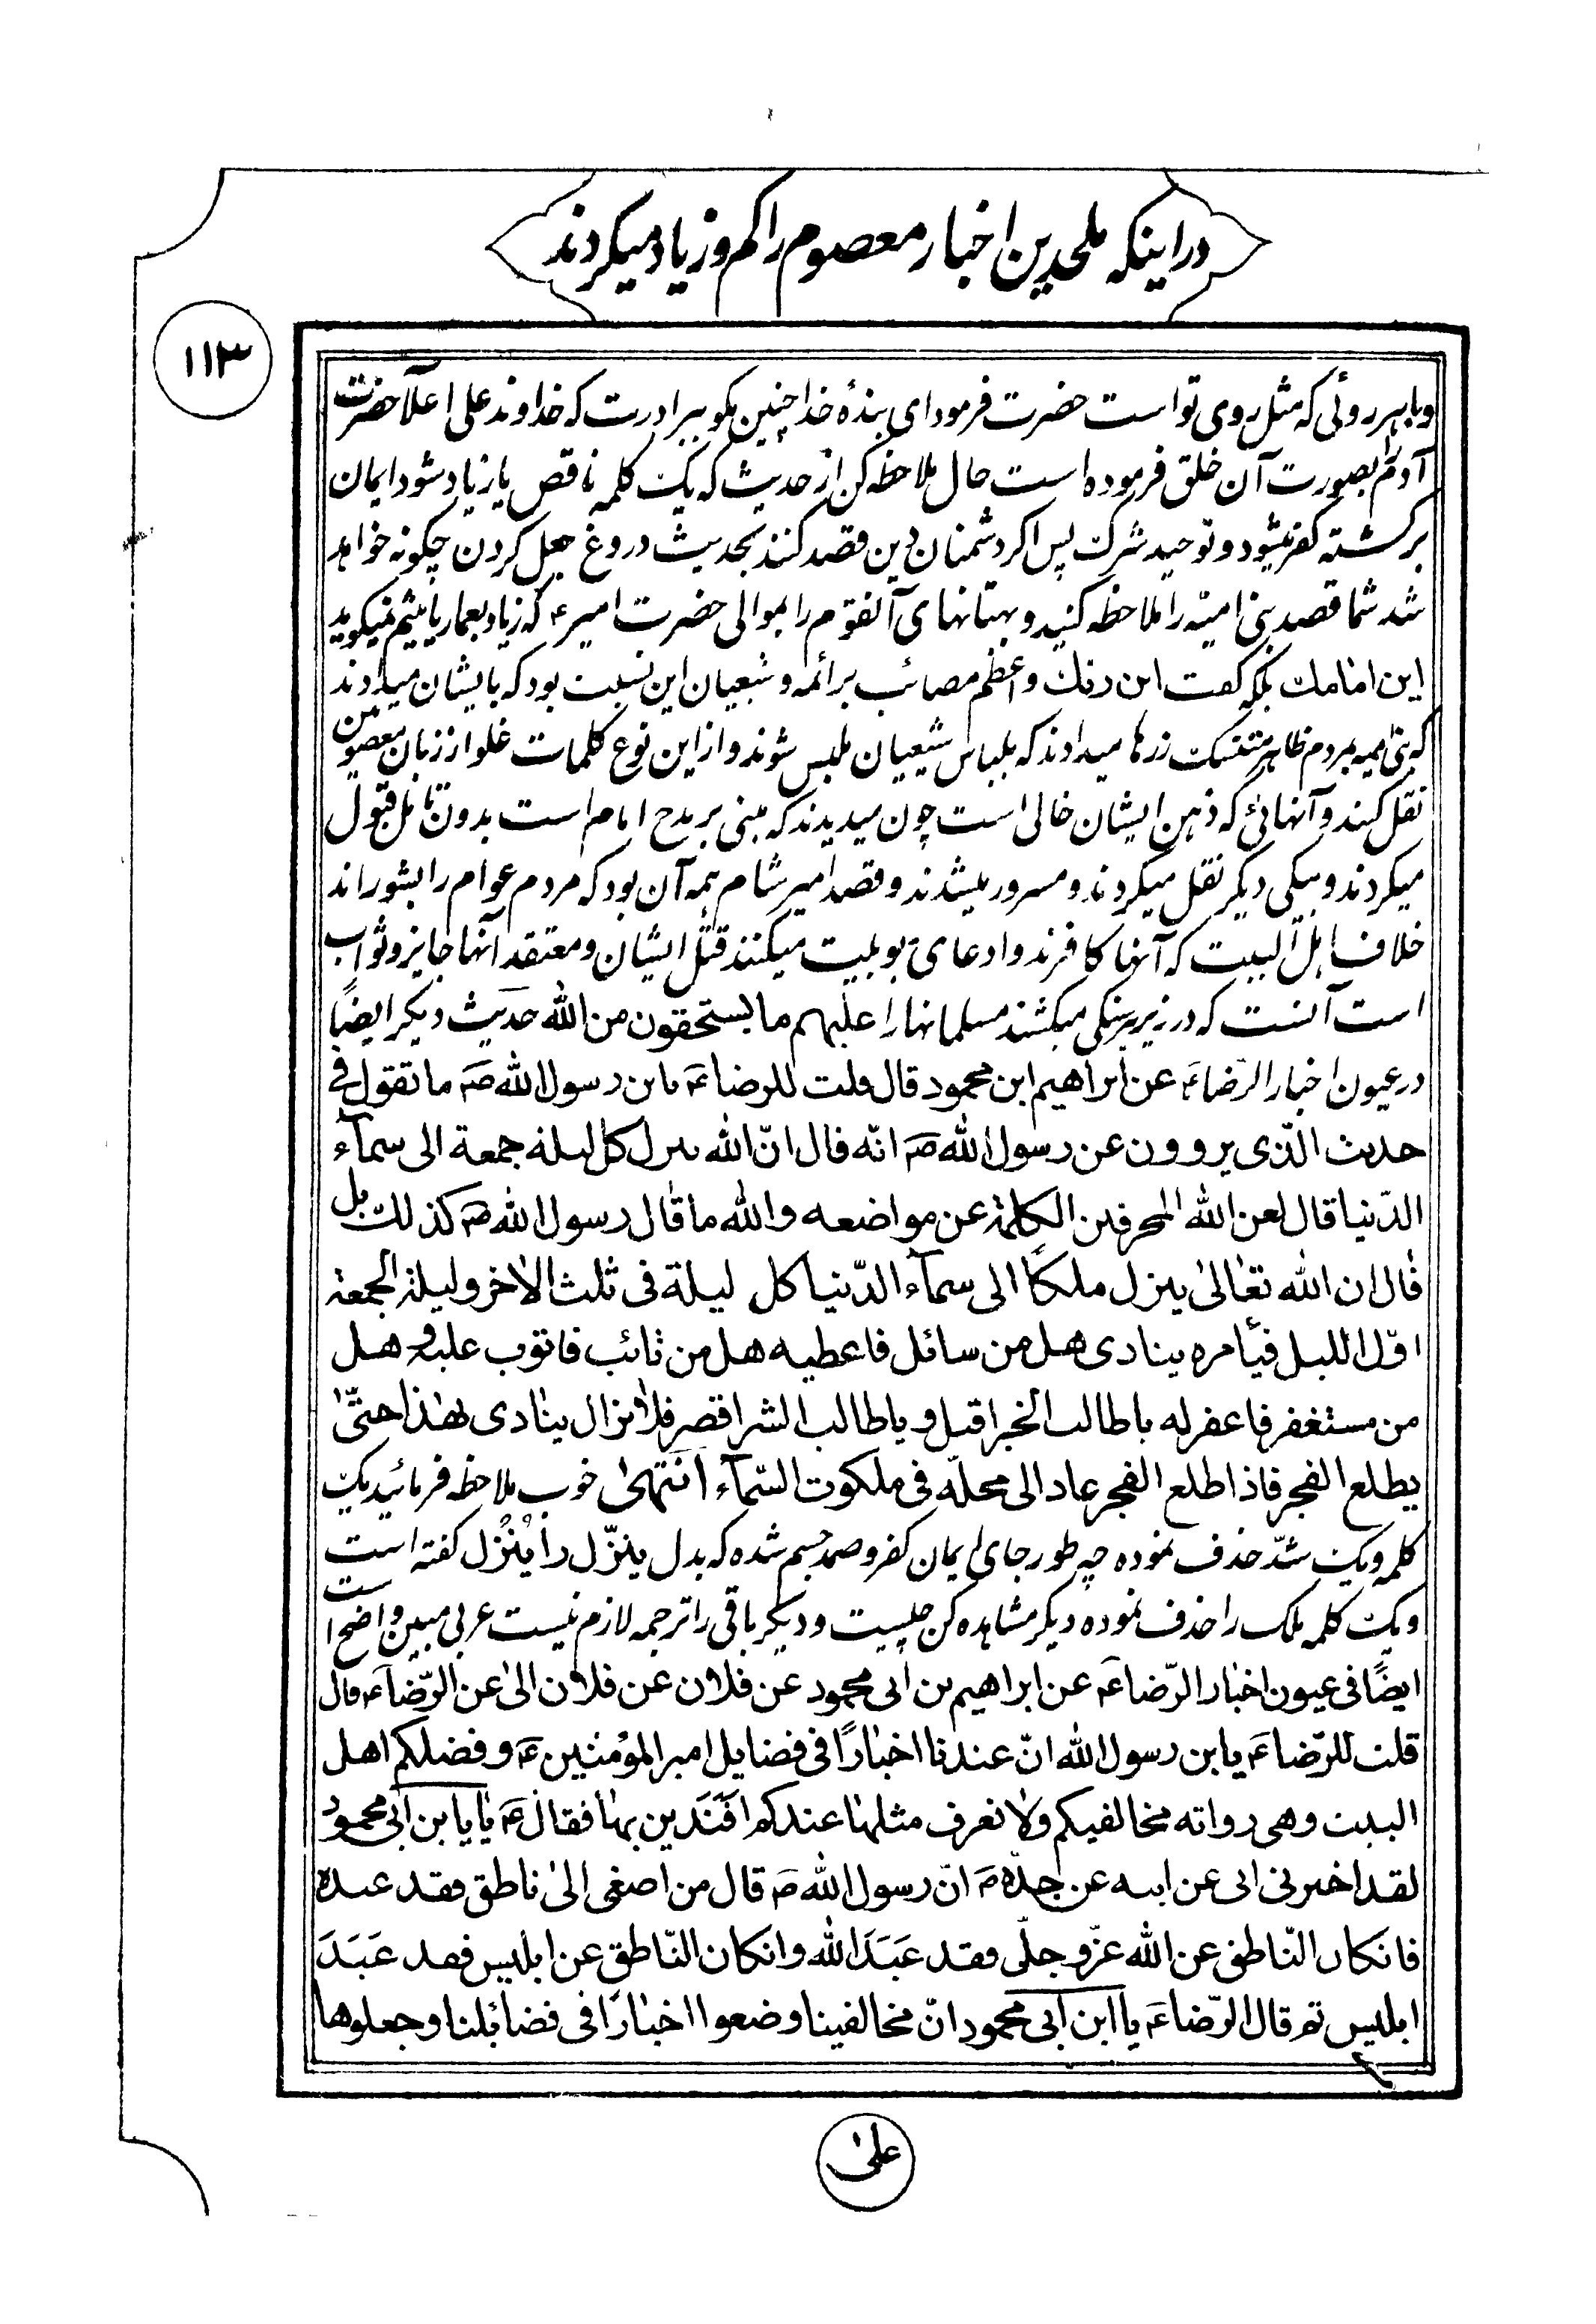 در اینکه ملحدین اخبار معصوم را کم و زیاد میکردند
۱۱۳
و باهر روئی که مثل روی تو است حضرت فرمود ای بندهٔ خدا چنین مگو ببرادرت که خداوند علی اعلا حضرت
آدم را بصورت آن خلق فرموده است حال ملاحظه کن از حدیث که یک کلمه ناقص یا زیاد شود ایمان
برگشته کفر میشود و توحید شرک پس اگر دشمنان دین قصد کنند بحدیث دروغ جعل کردن چگونه خواهد
شد شما قصد بنی امیّه را ملاحظه کنید و بهتانهای آنقوم را بموالی حضرت امیر ع که زیاد بعمار یا میثم میگوید
این امامک بلکه گفت ابن ربک و اعظم مصائب بر ائمه و شیعیان این نسبت بود که بایشان میدادند
که بنی امیه بمردم ظاهر متنسک زرها میدادند که بلباس شیعیان ملبس شوند و از این نوع کلمات غلو از زبان معصومین
نقل کنند و آنهائی که ذهن ایشان خالی است چون میدیدند که مبنی بر مدح امام است بدون تامل قبول
میکردند و بیکی دیگر نقل میکردند و مسرور میشدند و قصد امیر شام همه آن بود که مردم عوام را بشوراند
خلاف اهل البیت که آنها کافرند و ادعای ربوبیت میکنند قتل ایشان و معتقد آنها جایز و ثواب
است آنست که در زیر هر سنگی میکشند مسلمانها را علیهم ما یستحقون من الله حدیث دیگر ایضًا
در عیون اخبار الرّضا ع عن ابراهیم ابن محمود قال قلت للرضا ع یابن رسول الله ص ما تقول فی
حدیث الّذی یروون عن رسول الله ص انّه قال انّ الله ینزل کل لیلة جمعة الی سمآء
الدّنیا قال لعن الله المحرفین الکلمة عن مواضعه والله ما قال رسول الله ص کذلک بل
قال ان الله تعالیٰ ینزل ملکًا الی سمآء الدّنیا کل لیلة فی ثلث الاخر و لیلة الجمعة
اوّل اللیل فیأمره ینادی هل من سائل فاعطیه هل من تائب فاتوب علیه و هل
من مستغفر فاغفر له یا طالب الخیر اقبل و یا طالب الشر اقصر فلا یزال ینادی بهٰذا حتّیٰ
یطلع الفجر فاذا طلع الفجر عاد الی محلّه فی ملکوت السّمآء انتهیٰ خوب ملاحظه فرمائید یک
کلمه و یک شدّ حذف نموده چه طور جای ایمان کفر و صمد جسم شده که بدل ینزّل را یُنْزُل گفته است
و یک کلمه ملک را حذف نموده دیگر مشاهده کن چیست و دیگر باقی را ترجمه لازم نیست عربی مبین واضح است
ایضًا فی عیون اخبار الرّضا ع عن ابراهیم بن ابی محمود عن فلان عن فلان الیٰ عن الرّضا ع قال
قلت للرّضا ع یابن رسول الله انّ عندنا اخبارًا فی فضایل امیر المؤمنین ع و فضلکم اهل
البیت و هی رواته مخالفیکم و لا نعرف مثلها عندکم افَنَدین بها فقال ع یا یابن ابی محمود
لقد اخبرنی ابی عن ابیه عن جدّه ص انّ رسول الله ص قال من اصغی الیٰ ناطق فقد عبده
فانکان النّاطق عن الله عزّ و جلّ فقد عَبَدَ الله و انکان النّاطق عن ابلیس فقد عَبَدَ
ابلیس ثم قال الرّضا ع یا ابن ابی محمود انّ مخالفینا وضعوا اخبارًا فی فضائلنا و جعلوها
علیٰ